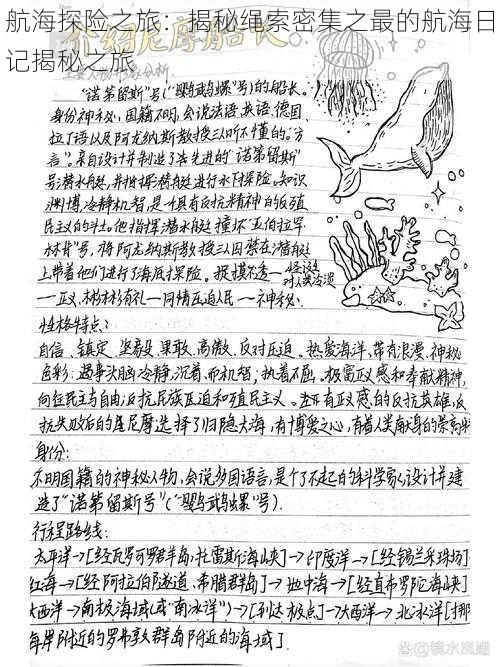 航海探险之旅：揭秘绳索密集之最的航海日
记揭秘之旅
介绍尼摩船长
主要人物形象分析.
"诺第留斯"号("鹦鹉螺"号)的船长。
身份神秘,国籍不明,会说法语,英语,德国,
拉丁语以及阿龙纳斯教授三人听不懂的"方
言"。亲自设计并制造了先进的"诺第留斯"
号潜水艇,并指挥潜艇进行水下探险。知识
渊博,冷静机智,是个具有反抗精神的反殖
民主义的斗士。他指挥潜水艇撞坏"亚伯拉罕
林肯"号,将阿龙纳斯教授三人囚禁在潜艇
上带着他们进行了海底探险。捉摸不透—
怪诞
对人类冷漠
——正义、彬彬有礼—同情压迫人民—神秘、
性格特点:
自信、镇定、坚毅、果敢、高傲、反对压迫、热爱海洋,带有浪漫、神秘
色彩:遇事头脑冷静,沉着而机智;执着不屈,极富正义感和奉献精神,
向往民主与自由,反抗民族压迫和殖民主义。
抗失败后的尼摩选择了归隐大海,有博爱之心,有着人类
身份:
不明国籍的神秘人物,会说多国语言,是个了不起的科学家,设计并建
造了"诺第留斯号"("鹦鹉螺"号).
行程路线:
太平洋→[经瓦罗可罗群岛,托雷斯海峡]→印度洋→[经锡兰采珠场]
红海→[经阿拉伯隧道、希腊群岛]→地中海→[经直布罗陀海峡]
大西洋→南极海域(或"南冰洋")→[到达极点]→大西洋→北冰洋[挪
海岸附近的罗弗敦群岛附近的海域].